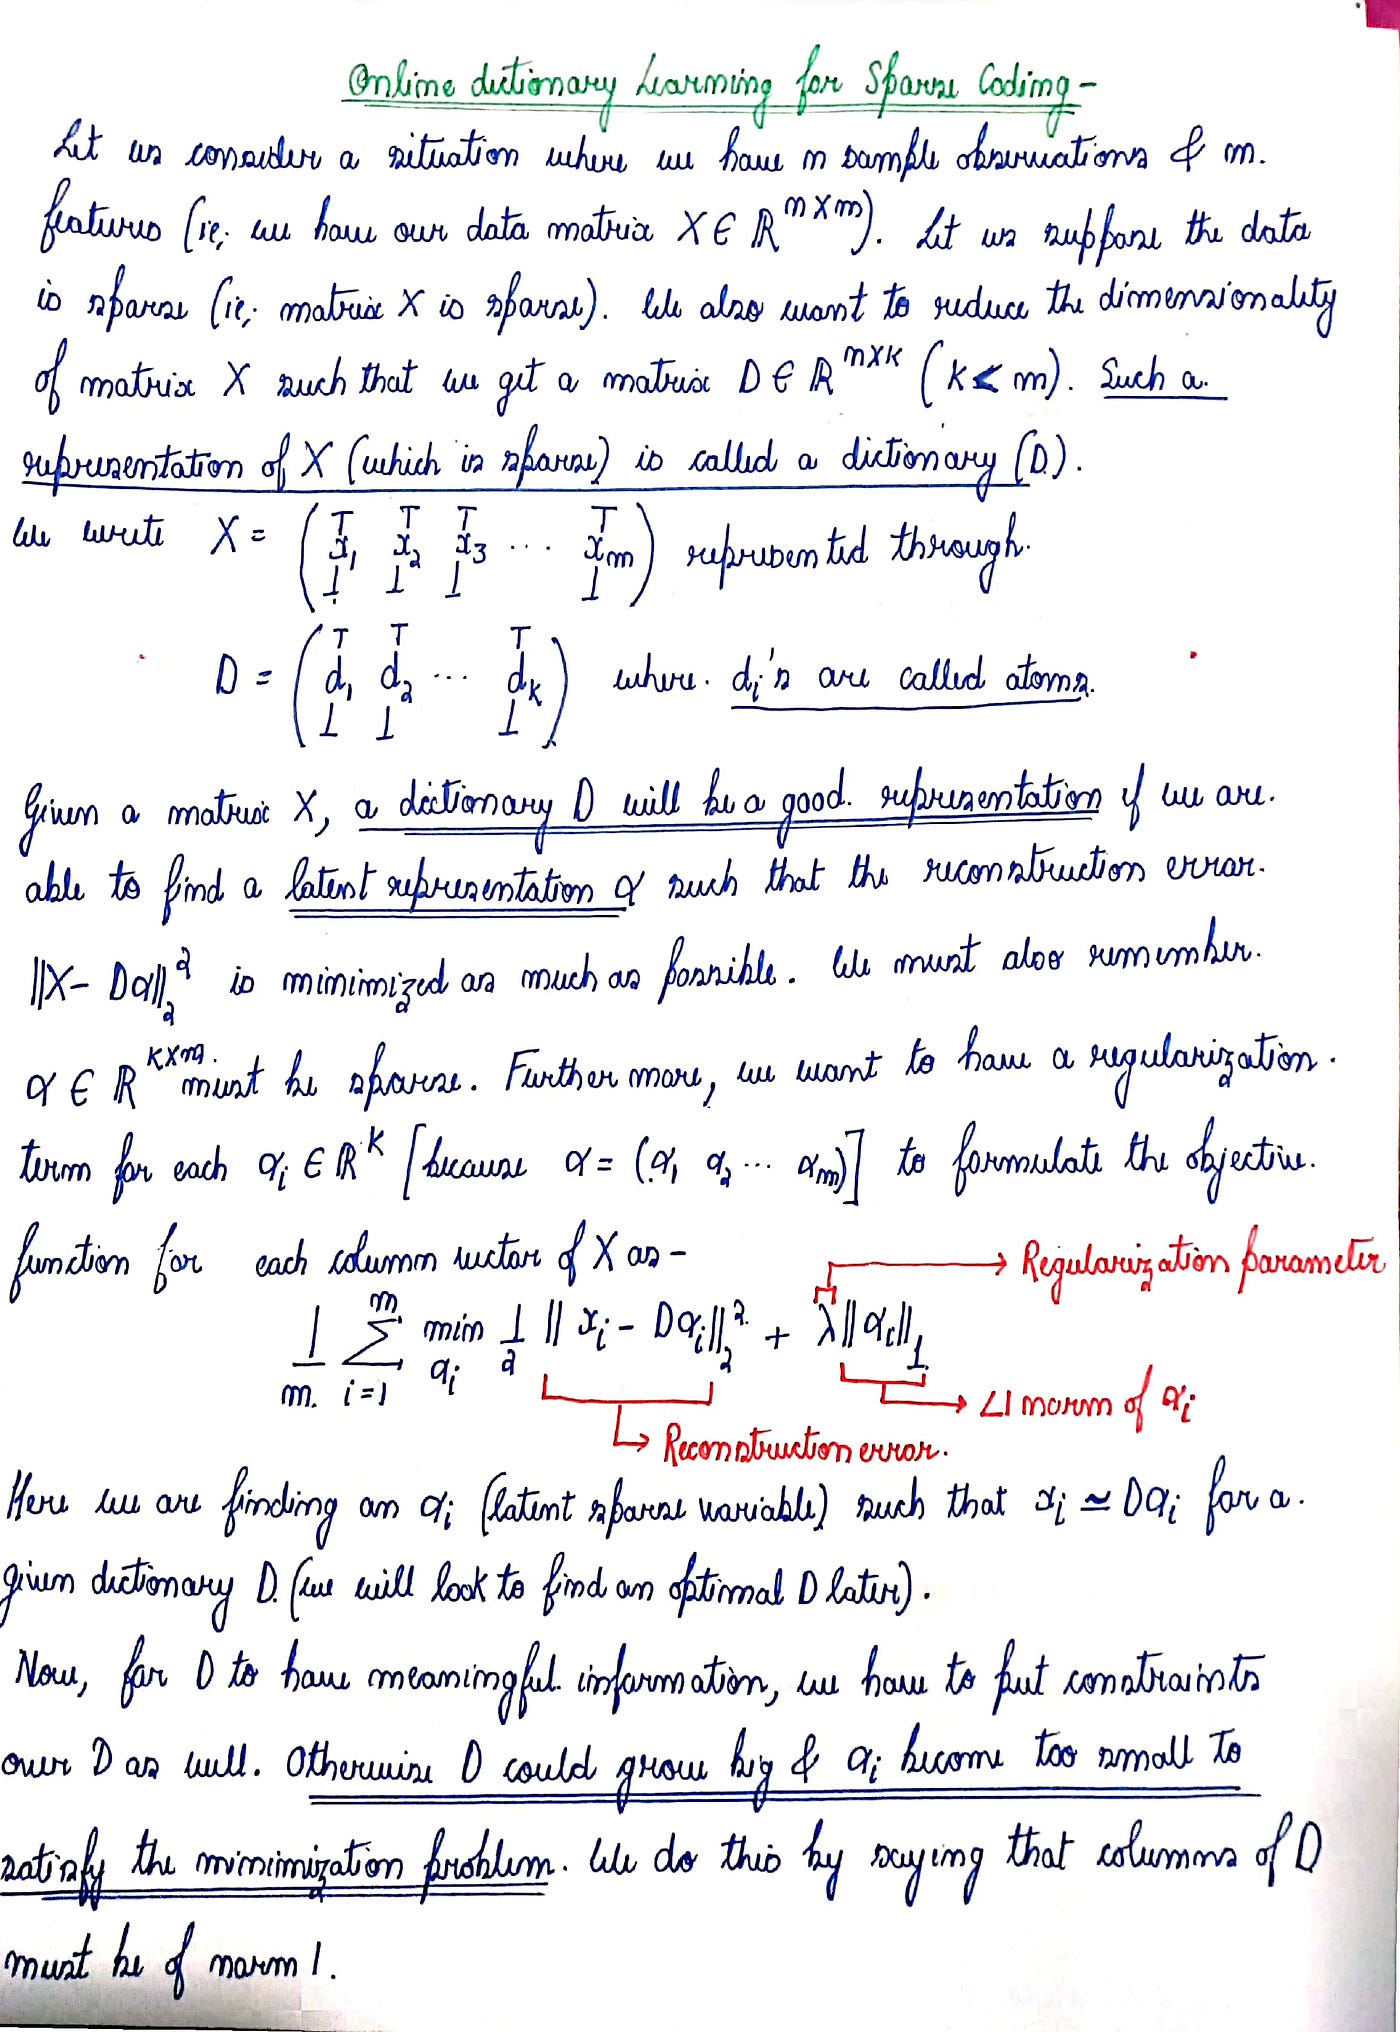 Online dictionary Learning for Sparse Coding -
Let us consider a situation where we have n sample observations & m.
features (ie; we have our data matrix X ∈ ℝ^(n×m)). Let us suppose the data
is sparse (ie; matrix X is sparse). We also want to reduce the dimensionality
of matrix X such that we get a matrix D ∈ ℝ^(n×k) (k < m). Such a.
representation of X (which is sparse) is called a dictionary (D).
We write X = (x₁ x₂ x₃ ... xₘ) represented through.
D = (d₁ d₂ ... dₖ) where. dᵢ's are called atoms.
Given a matrix X, a dictionary D will be a good. representation if we are.
able to find a latent representation α such that the reconstruction error.
||X - Dα||₂² is minimized as much as possible. We must also remember.
α ∈ ℝ^(k×m). must be sparse. Further more, we want to have a regularization.
term for each αᵢ ∈ ℝ^k [because α = (α₁ α₂ ... αₘ)] to formulate the objective.
function for each column vector of X as -
Regularization parameter
1/m. Σ_(i=1)^m min_(αᵢ) 1/2 ||xᵢ - Dαᵢ||₂² + λ||αᵢ||₁
L1 norm of αᵢ
Reconstruction error.
Here we are finding an αᵢ (latent sparse variable) such that xᵢ ≃ Dαᵢ for a.
given dictionary D. (we will look to find an optimal D later).
Now, for D to have meaningful. information, we have to put constraints
over D as well. Otherwise D could grow big & αᵢ become too small to
satisfy the minimization problem. We do this by saying that columns of D
must be of norm 1.